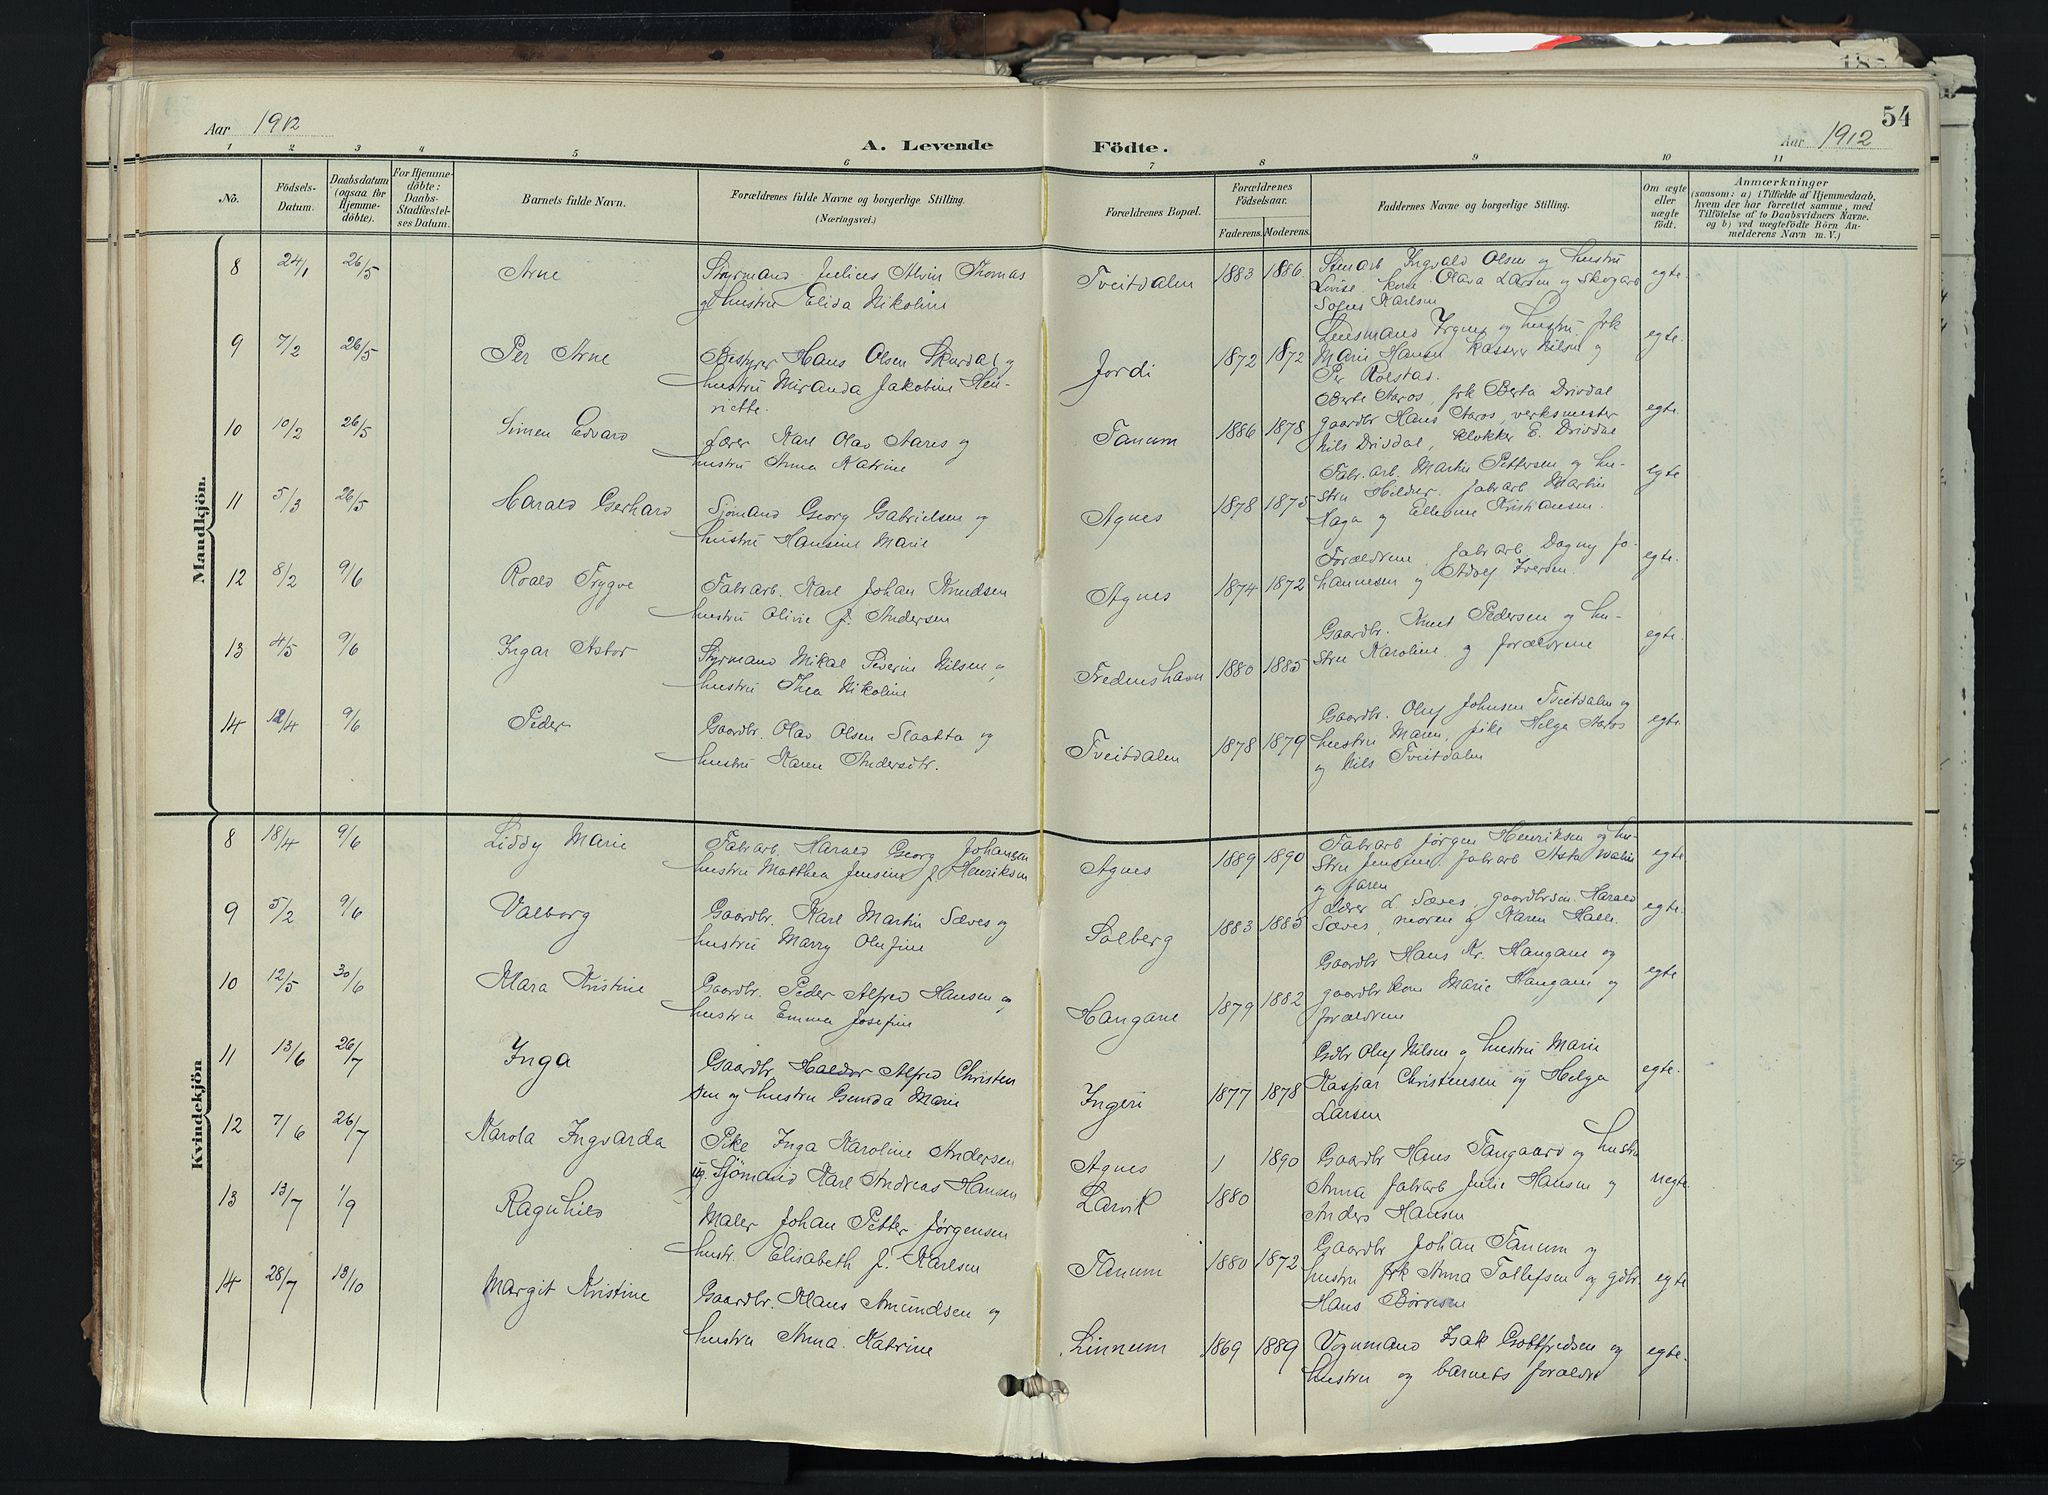 54
Aar 1912
A. Levende Födte.
Aar 1912
1 2 3 4 5 6 7 8 9 10 11
No.
Födsels-Datum.
Daabsdatum (ogsaa for Hjemme-döbte).
For Hjemme-döbte: Daabs-Stadfæstel-ses Datum.
Barnets fulde Navn.
Forældrenes fulde Navne og borgerlige Stilling. (Næringsvei.)
Forældrenes Bopæl.
Forældrenes Födselsaar.
Faderens. Moderens.
Faddernes Navne og borgerlige Stilling.
Om ægte eller uægte födt.
Anmærkninger
(saasom: a) i Tilfælde af Hjemmedaab, hvem der har forrettet samme, med Tilföielse af to Daabsvidners Navne. og b) ved uægtefödte Börn An-melderens Navn m. V.)
Mandkjön.
8 24/1 26/5 Arne
Styrmand Julius Alvin Thomas
og hustru Elida Nikoline
Tveitdalen 1883 1886
Stenarb Ingvald Olsen og hustru
Lovise. kone Olava Larsen og Skogarb
Karlsen
egte
9 7/2 26/5 Per Arne
Bestyrer Hans Olsen Skurdal og
hustru Miranda Jakobine Hen-
riette.
Jordi 1872 1872
Lensmand og hustru. frk
Marie Hansen Kasserer Nilsen og
Per Rolstad.
egte.
10 10/2 26/5 Simen Edvard
Lærer Karl Olav Aares og
hustru Anna Katrine
Tanum 1886 1878
Berte Aaros, frk Berta Drivdal
gaardbr Hans Aaros, verksmester
Nils Drivdal, klokker E. Drivdal
egte.
11 5/3 26/5 Harald Gerhard
Sjømand Georg Gabrielsen og
hustru Hansine Marie
Agnes 1878 1875
Fabr.arb. Martin Pettersen og hu-
stru Hilder. fabrarb Martin
Haga og Ellevine Kristiansen.
egte
12 8/2 9/6 Roald Trygve
Fabrarb. Karl Johan Knudsen
hustru Olivie f. Andersen
Agnes 1874 1872
Forældrene fabrarb. Dagny Jo-
hannesen og Adolf Iversen.
egte.
13 4/5 9/6 Ingar Astor
Styrmand Mikal Severin Nilsen og
hustru Thea Nikoline
Fredenshavn 1880 1885
Gaardbr. Knut Pedersen og hu-
stru Karoline og forældrene
egte.
14 12/4 9/6 Peder
Gaardbr. Olav Olsen Slaatta og
hustru Karen Andersdtr.
Tveitdalen 1878 1879
Gaardbr. Oluf Johnsen Tveitdalen og
hustru Maren, pike Helga Aaros
og Nils Tveitdalen
egte
Kvindekjön
8 18/4 9/6 Liddy Marie
Fabrarb. Harald Georg Johansen
hustru Matthea Jensine f. Henriksen
Agnes 1889 1890
Fabrarb Jørgen Henriksen og hu-
stru Jensine, fabrarb Asta
og faren
egte
9 5/2 9/6 Valborg
Gaardbr. Karl Martin Sæves og
hustru Marry Olufine
Solberg 1883 1885
Lærer L. Sæves, gaardbrsøn Harald
Sæves, moren og Karen Halle.
egte.
10 12/5 30/6 Mara Kristine
Gaardbr. Peder Alfred Hansen og
hustru Emma Josefine
Hangane 1879 1882
Gaardbr Hans Kr. Hangane og
gaardbrkone Marie Hangane og
forældrene
egte
11 13/6 26/7 Inga
Gaardbr Haldor Alfred Christen
sen og hustru Gunda Marie
Ingeri 1877 1878
Gdbr Oluf Nilsen og hustru Marie
Kaspar Christensen og Helga
Larsen
egte.
12 7/6 26/7 Karola Ingvarda
Pike Inga Karoline Andersen
ug. Sjømand Karl Andreas Hansen
Agnes 1 1890
Larvik 1880
Gaardbr Hans Tangaard og hustru
Anna fabrarb Julie Hansen og
Anders Hansen
uegte
13 13/7 1/9 Ragnhild
Maler Johan Petter Jørgensen
hustr. Elisabeth f. Karlsen
Tanum 1880 1872
Gaardbr Johan Tanum og
hustru frk Anna Tollefsen og gdbr
Hans Børresen
egte
14 28/7 13/10 Margit Kristine
Gaardbr. Klaus Amundsen og
hustru Anna Katrine
Linnum 1869 1889
Vognmand Isak Gottfredsen og
hustru og barnets forældre
egte.